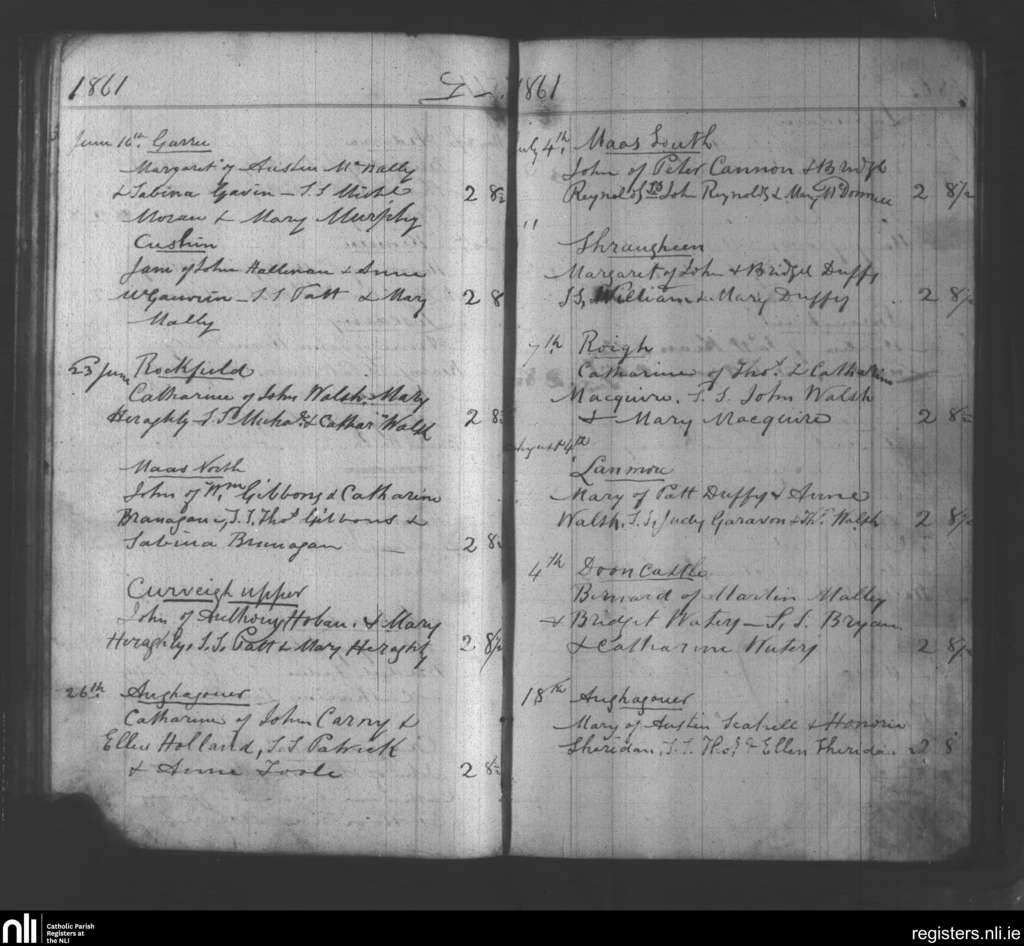 1861
June 16th. Garru
Margaret of Austin McNally
& Sabina Gavin - S.S Michl
Moran & Mary Murphy 2 8
Cushin
Jane of John Hallinan & Anne
- S.S Patt & Mary 2 8
Mally
23 June Rockfield
Catharine of John Walsh & Mary
Heraghty - S.S Micha. & Cathar. Walsh 2 8
Maas North
John of Wm Gibbons & Catharine
Branagan, S.S. Thos Gibbons &
Sabina Branagan - 2 8
Curveigh upper
John of Anthony Hoban. & Mary
Heraghty, S.S. Patt & Mary Heraghty 2 8/2
26th. Aughagouer
Catharine of John Carny &
Ellen Holland, S.S Patrick
& Anne Toole 2 8
1861
July 4th. Maas South
John of Peter Cannon & Bridgt
Reynolds SS John Reynolds & Mary McDonnell 2 8/2
"
Shraugheen
Margaret of John & Bridget Duffy
S.S, William & Mary Duffy 2 8/2
7th Roigh
Catharine of Thos. & Catharine
Macquire. S.S. John Walsh
& Mary Macquire 2 8
August 4th
Lanmore
Mary of Patt Duffy & Anne
Walsh. S.S, Judy Garavan & Ths. Walsh 2 8/2
4th Dooncastle
Bernard of Martin Malley
& Bridget Waters - S.S. Bryan
& Catharine Waters 2 8/2
18th Aughagouer
Mary of Austin Scahill & Honoria
Sheridan. S.S. Thos. & Ellen Sheridan 2 8
nli
Catholic Parish
Registers at
the NLI
registers.nli.ie